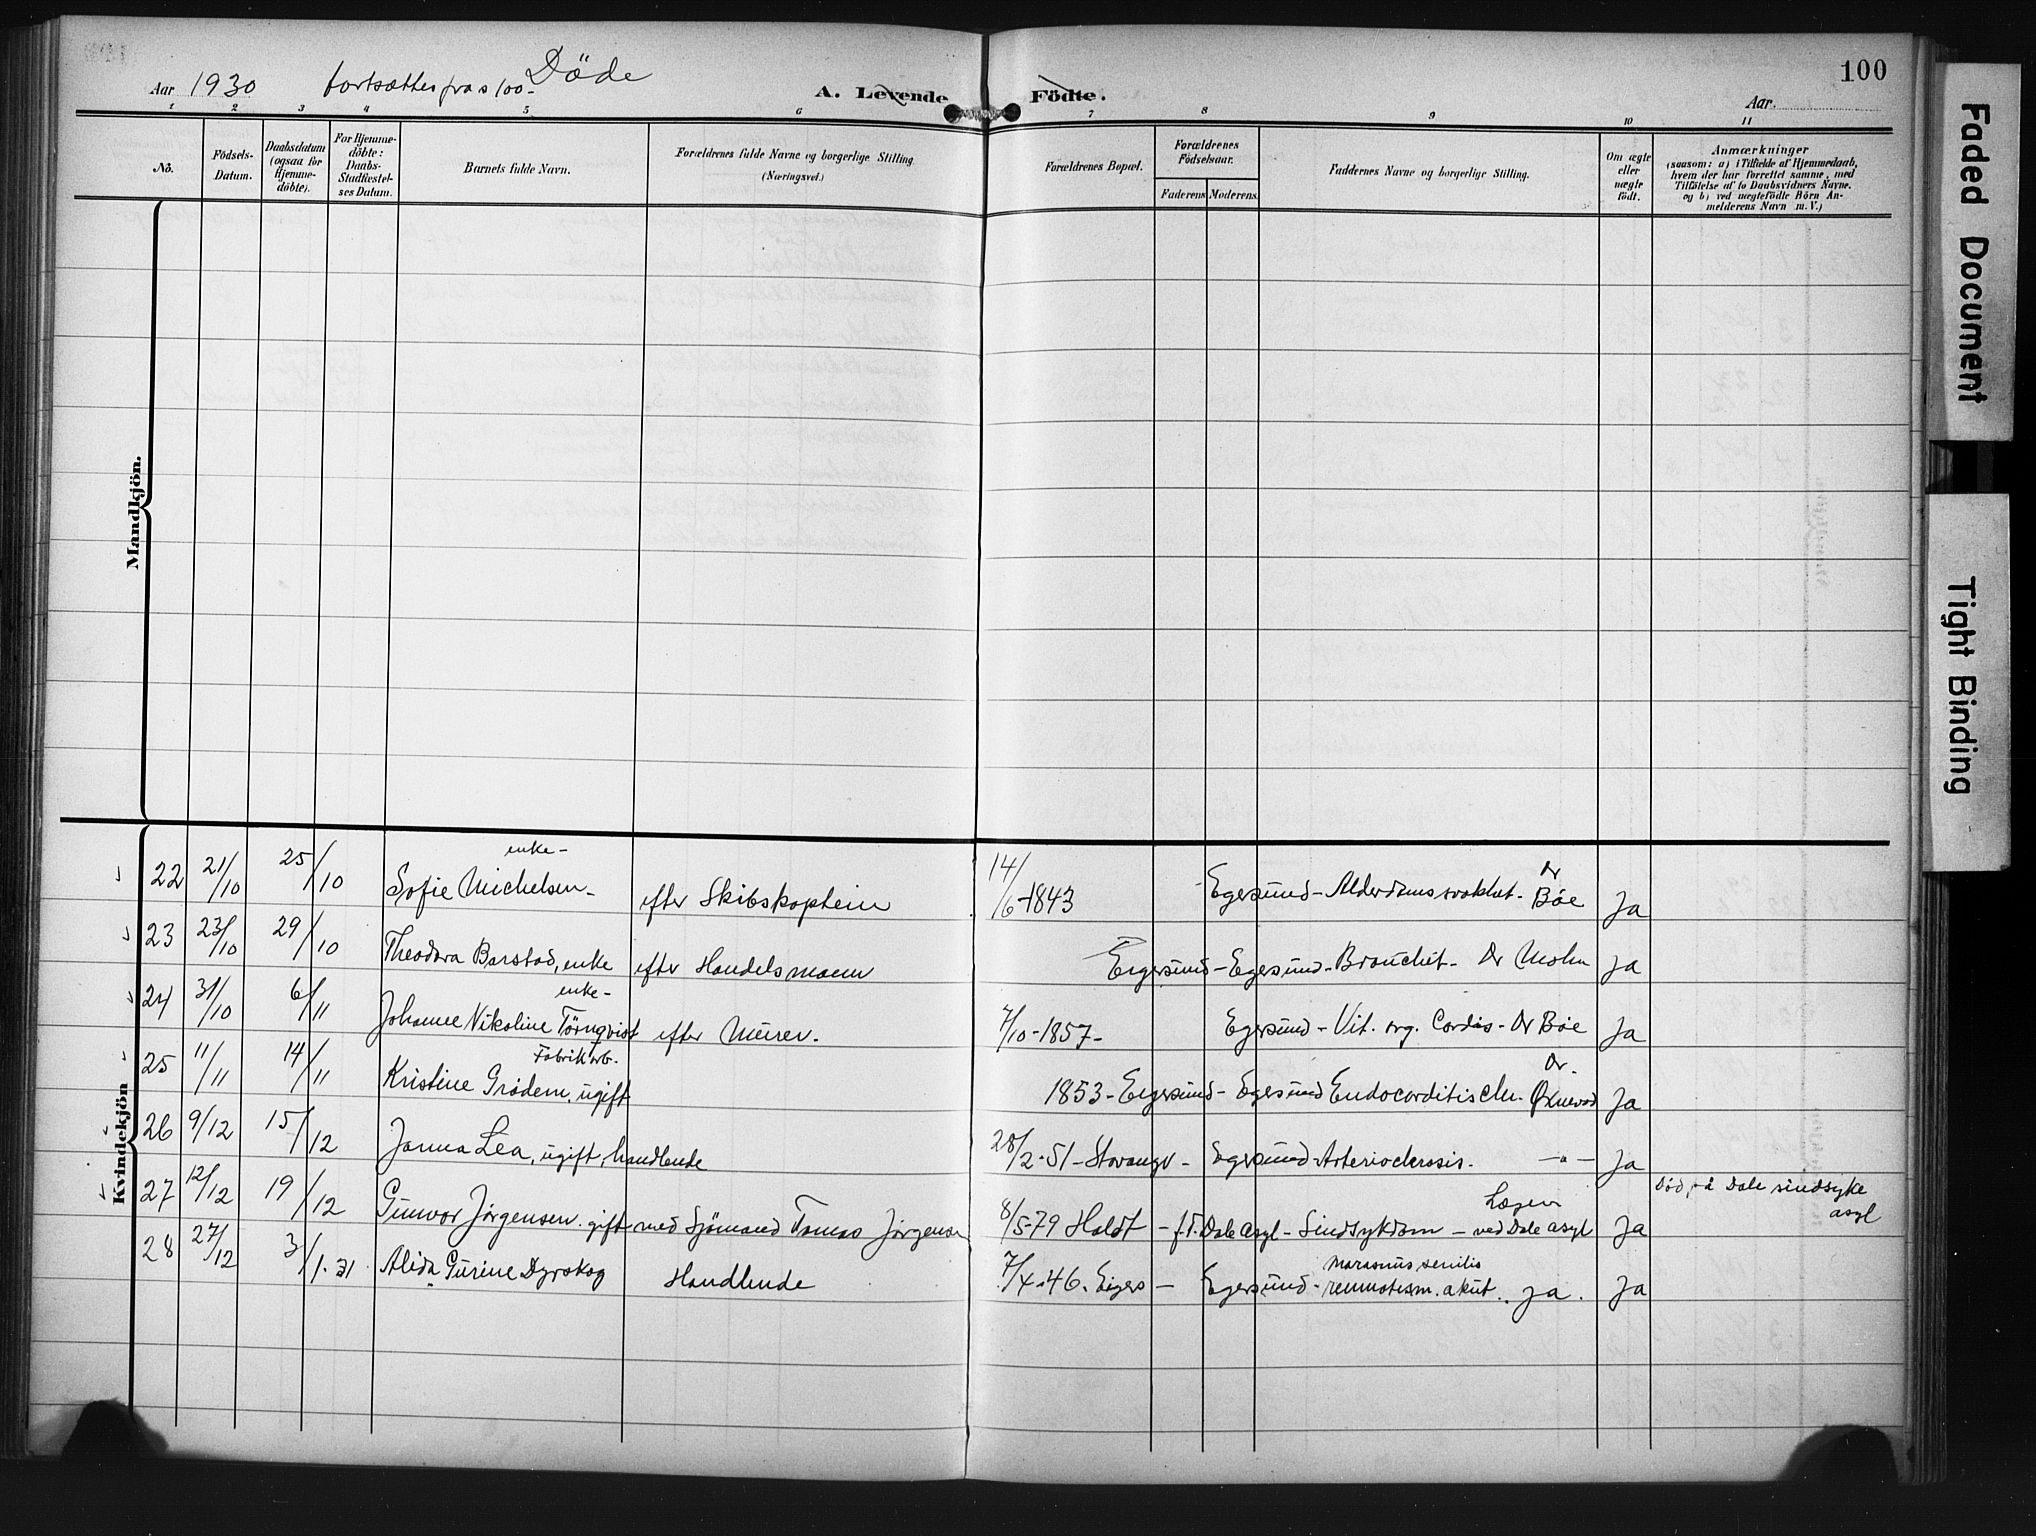 Aar 1930 fortsættes fra s 100- Döde
A. Levende Födte.
100
Aar.
1 2 3 4 5 6 7 8 9 10 11
No.
Födsels-Datum.
Daabsdatum (ogsaa for Hjemme-döbte).
For Hjemme-döbte: Daabs-Stadfæstel-ses Datum.
Barnets fulde Navn.
Forældrenes fulde Navne og borgerlige Stilling. (Næringsvei.)
Forældrenes Bopæl.
Forældrenes Födselsaar.
Faderens Moderens
Faddernes Navne og borgerlige Stilling.
Om ægte eller uægte födt.
Anmærkninger
(saasom: a) i Tilfælde af Hjemmedaab,
hvem der har forrettet samme, med
Tilföielse af to Daabsvidners Navne.
og b) ved uægtefödte Börn An-
melderens Navn m. V.)
Mandkjön.
Kvindekjön
22 21/10 25/10 Sofie Michelsen- enke- efter Skibskaptein 14/6-1843 Egersund- Alderdomssvakhet- Dr Bøe Ja
23 23/10 29/10 Theodora Barstad, enke efter Handelsmann Eigersund- Egersund- Bronchit- Dr Mohn Ja
24 31/10 6/11 Johanne Nikoline Törnqvist enke- efter Murer. 7/10-1857- Egersund- Vit. org. Cordis- Dr Bøe Ja
25 11/11 14/11 Kristine Grødem, ugift Fabrikarb. 1853- Eigersund- Egersund Endocarditis chr. Dr. Øxnevad Ja
26 9/12 15/12 Janna Lea, ugift, handlende 28/2-51- Stavanger- Egersund- Arteriosclerosis. -"- Ja
27 12/12 19/12 Gunvor Jørgensen. gift med Sjömand Tomas Jørgensen 8/5-79 Haldt - f.t. Dale asyl- Sindsykdom- Lægen ved Dale asyl Ja Död på Dale sindsyke asyl
28 27/12 3/1.31 Alida Gurine Dyrskog Handlende 7/4.46. Eigers- Egersund- Marasmus senilis reumatism. akut. ja. Ja
Faded Document
Tight Binding